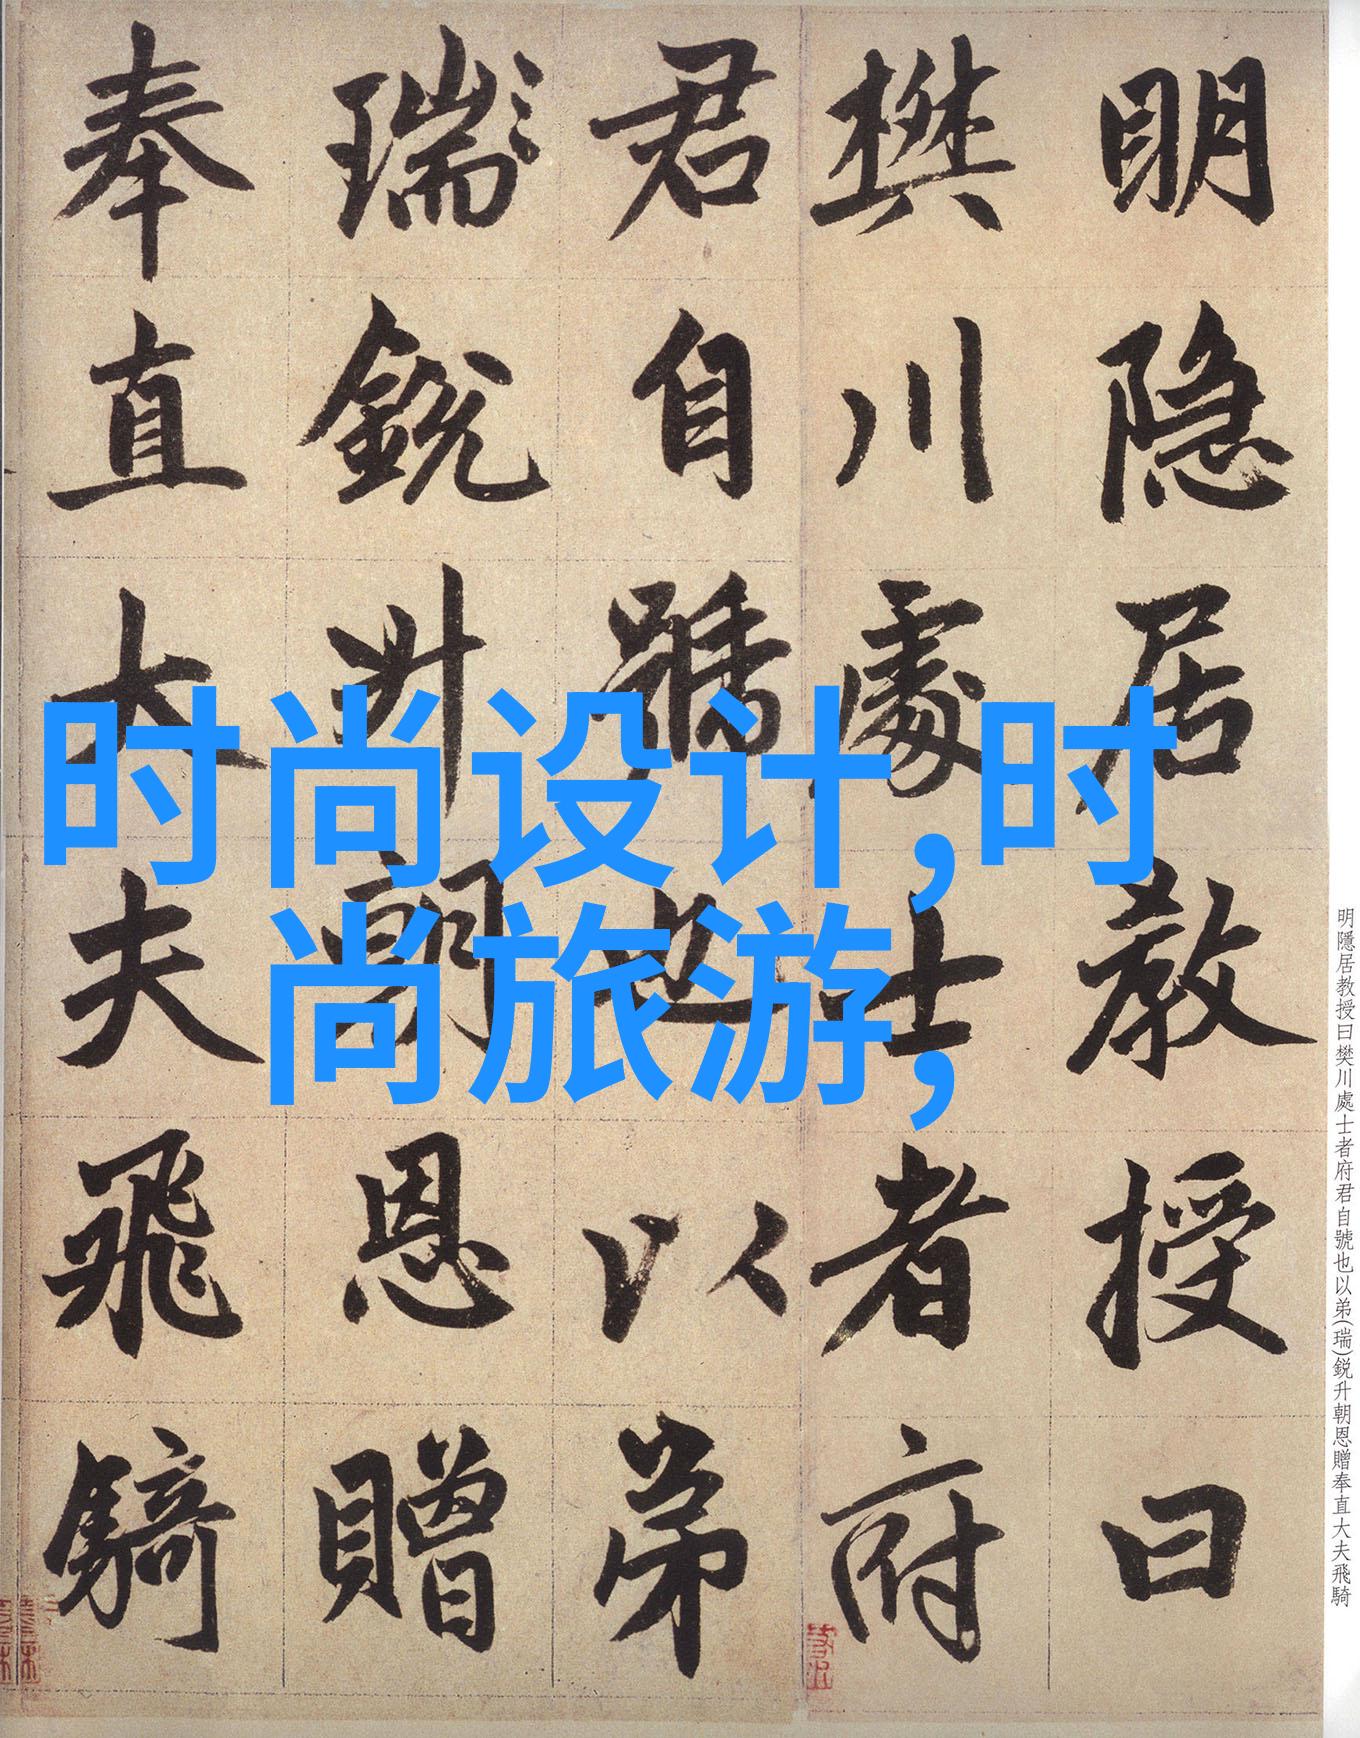 明隐居教授曰
樊川處士者府
君自號也以弟
瑞銳升朝恩贈
奉直大夫飛騎
时尚设计,时
尚旅游,
明隱居教授曰樊川處士者府君自號也以弟(瑞)鋭升朝恩贈奉直大夫飛騎